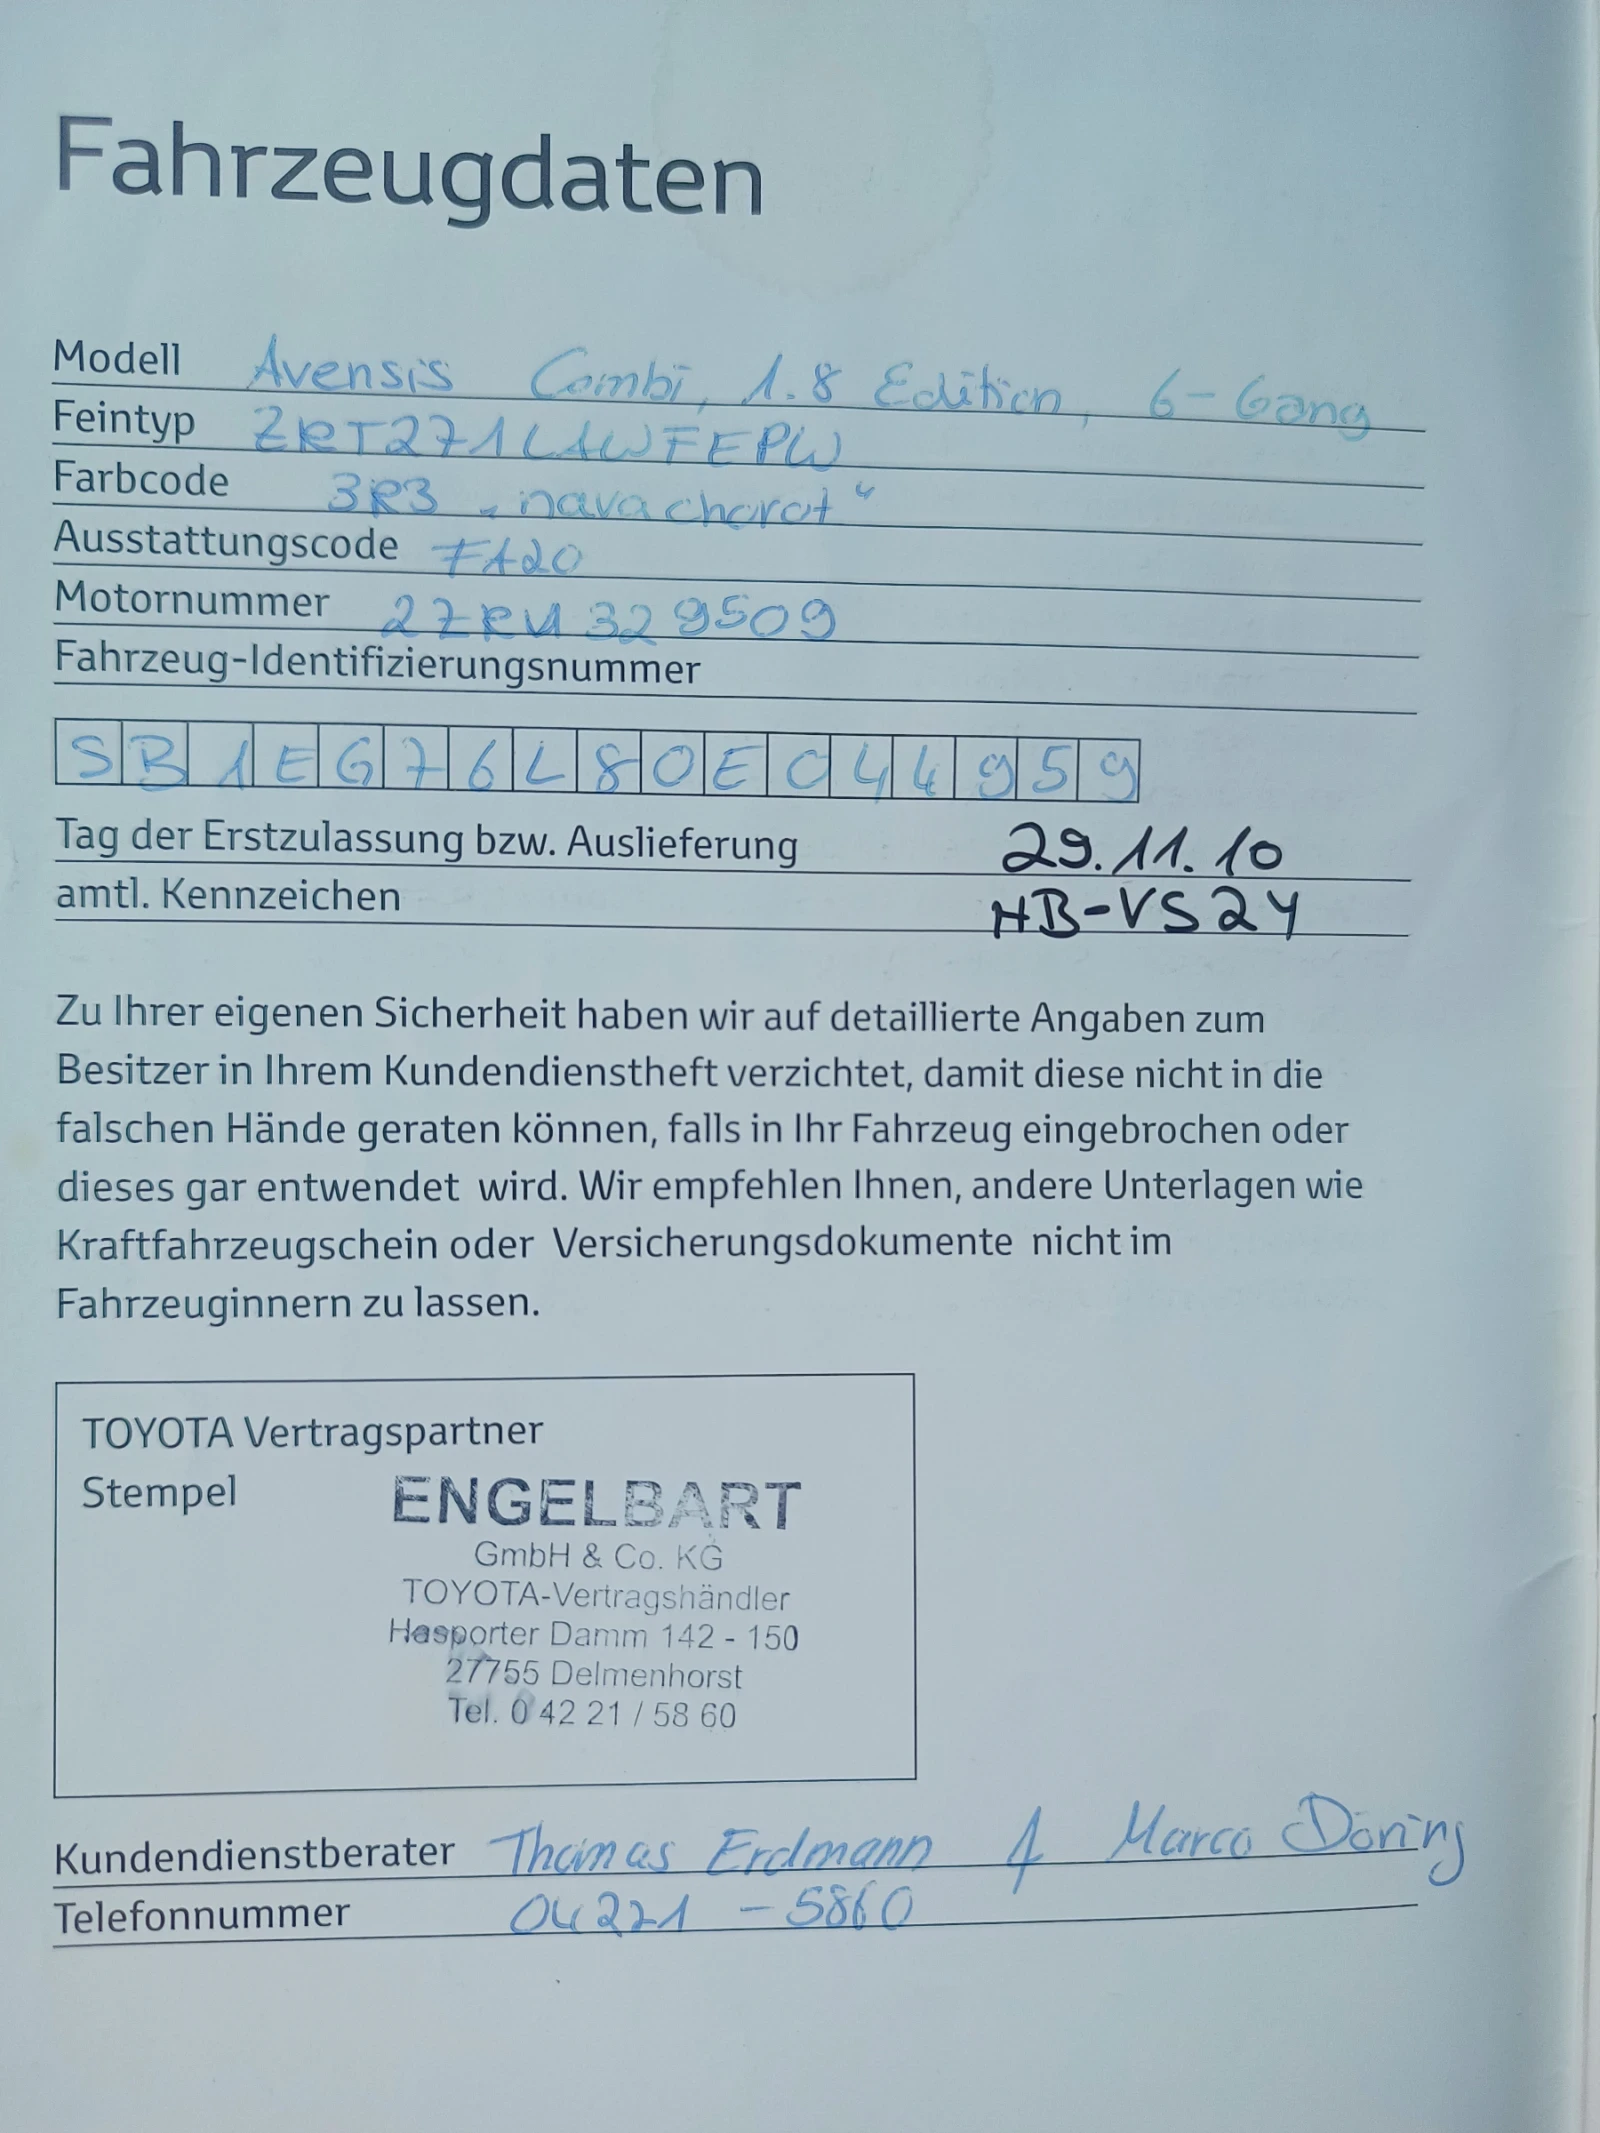 Fahrzeugdaten
Modell Avensis Combi, 1.8 Edition, 6-Gang
Feintyp ZRT271LAWFEPW
Farbcode 3R3 „navacharot“
Ausstattungscode FA20
Motornummer 2ZRU329509
Fahrzeug-Identifizierungsnummer
SB1EG76L80E044959
Tag der Erstzulassung bzw. Auslieferung 29.11.10
amtl. Kennzeichen HB-VS24
Zu Ihrer eigenen Sicherheit haben wir auf detaillierte Angaben zum
Besitzer in Ihrem Kundendienstheft verzichtet, damit diese nicht in die
falschen Hände geraten können, falls in Ihr Fahrzeug eingebrochen oder
dieses gar entwendet wird. Wir empfehlen Ihnen, andere Unterlagen wie
Kraftfahrzeugschein oder Versicherungsdokumente nicht im
Fahrzeuginnern zu lassen.
TOYOTA Vertragspartner
Stempel
ENGELBART
GmbH & Co. KG
TOYOTA-Vertragshändler
Hasporter Damm 142 - 150
27755 Delmenhorst
Tel. 0 42 21 / 58 60
Kundendienstberater Thomas Erdmann / Marco Döring
Telefonnummer 04221 - 5860